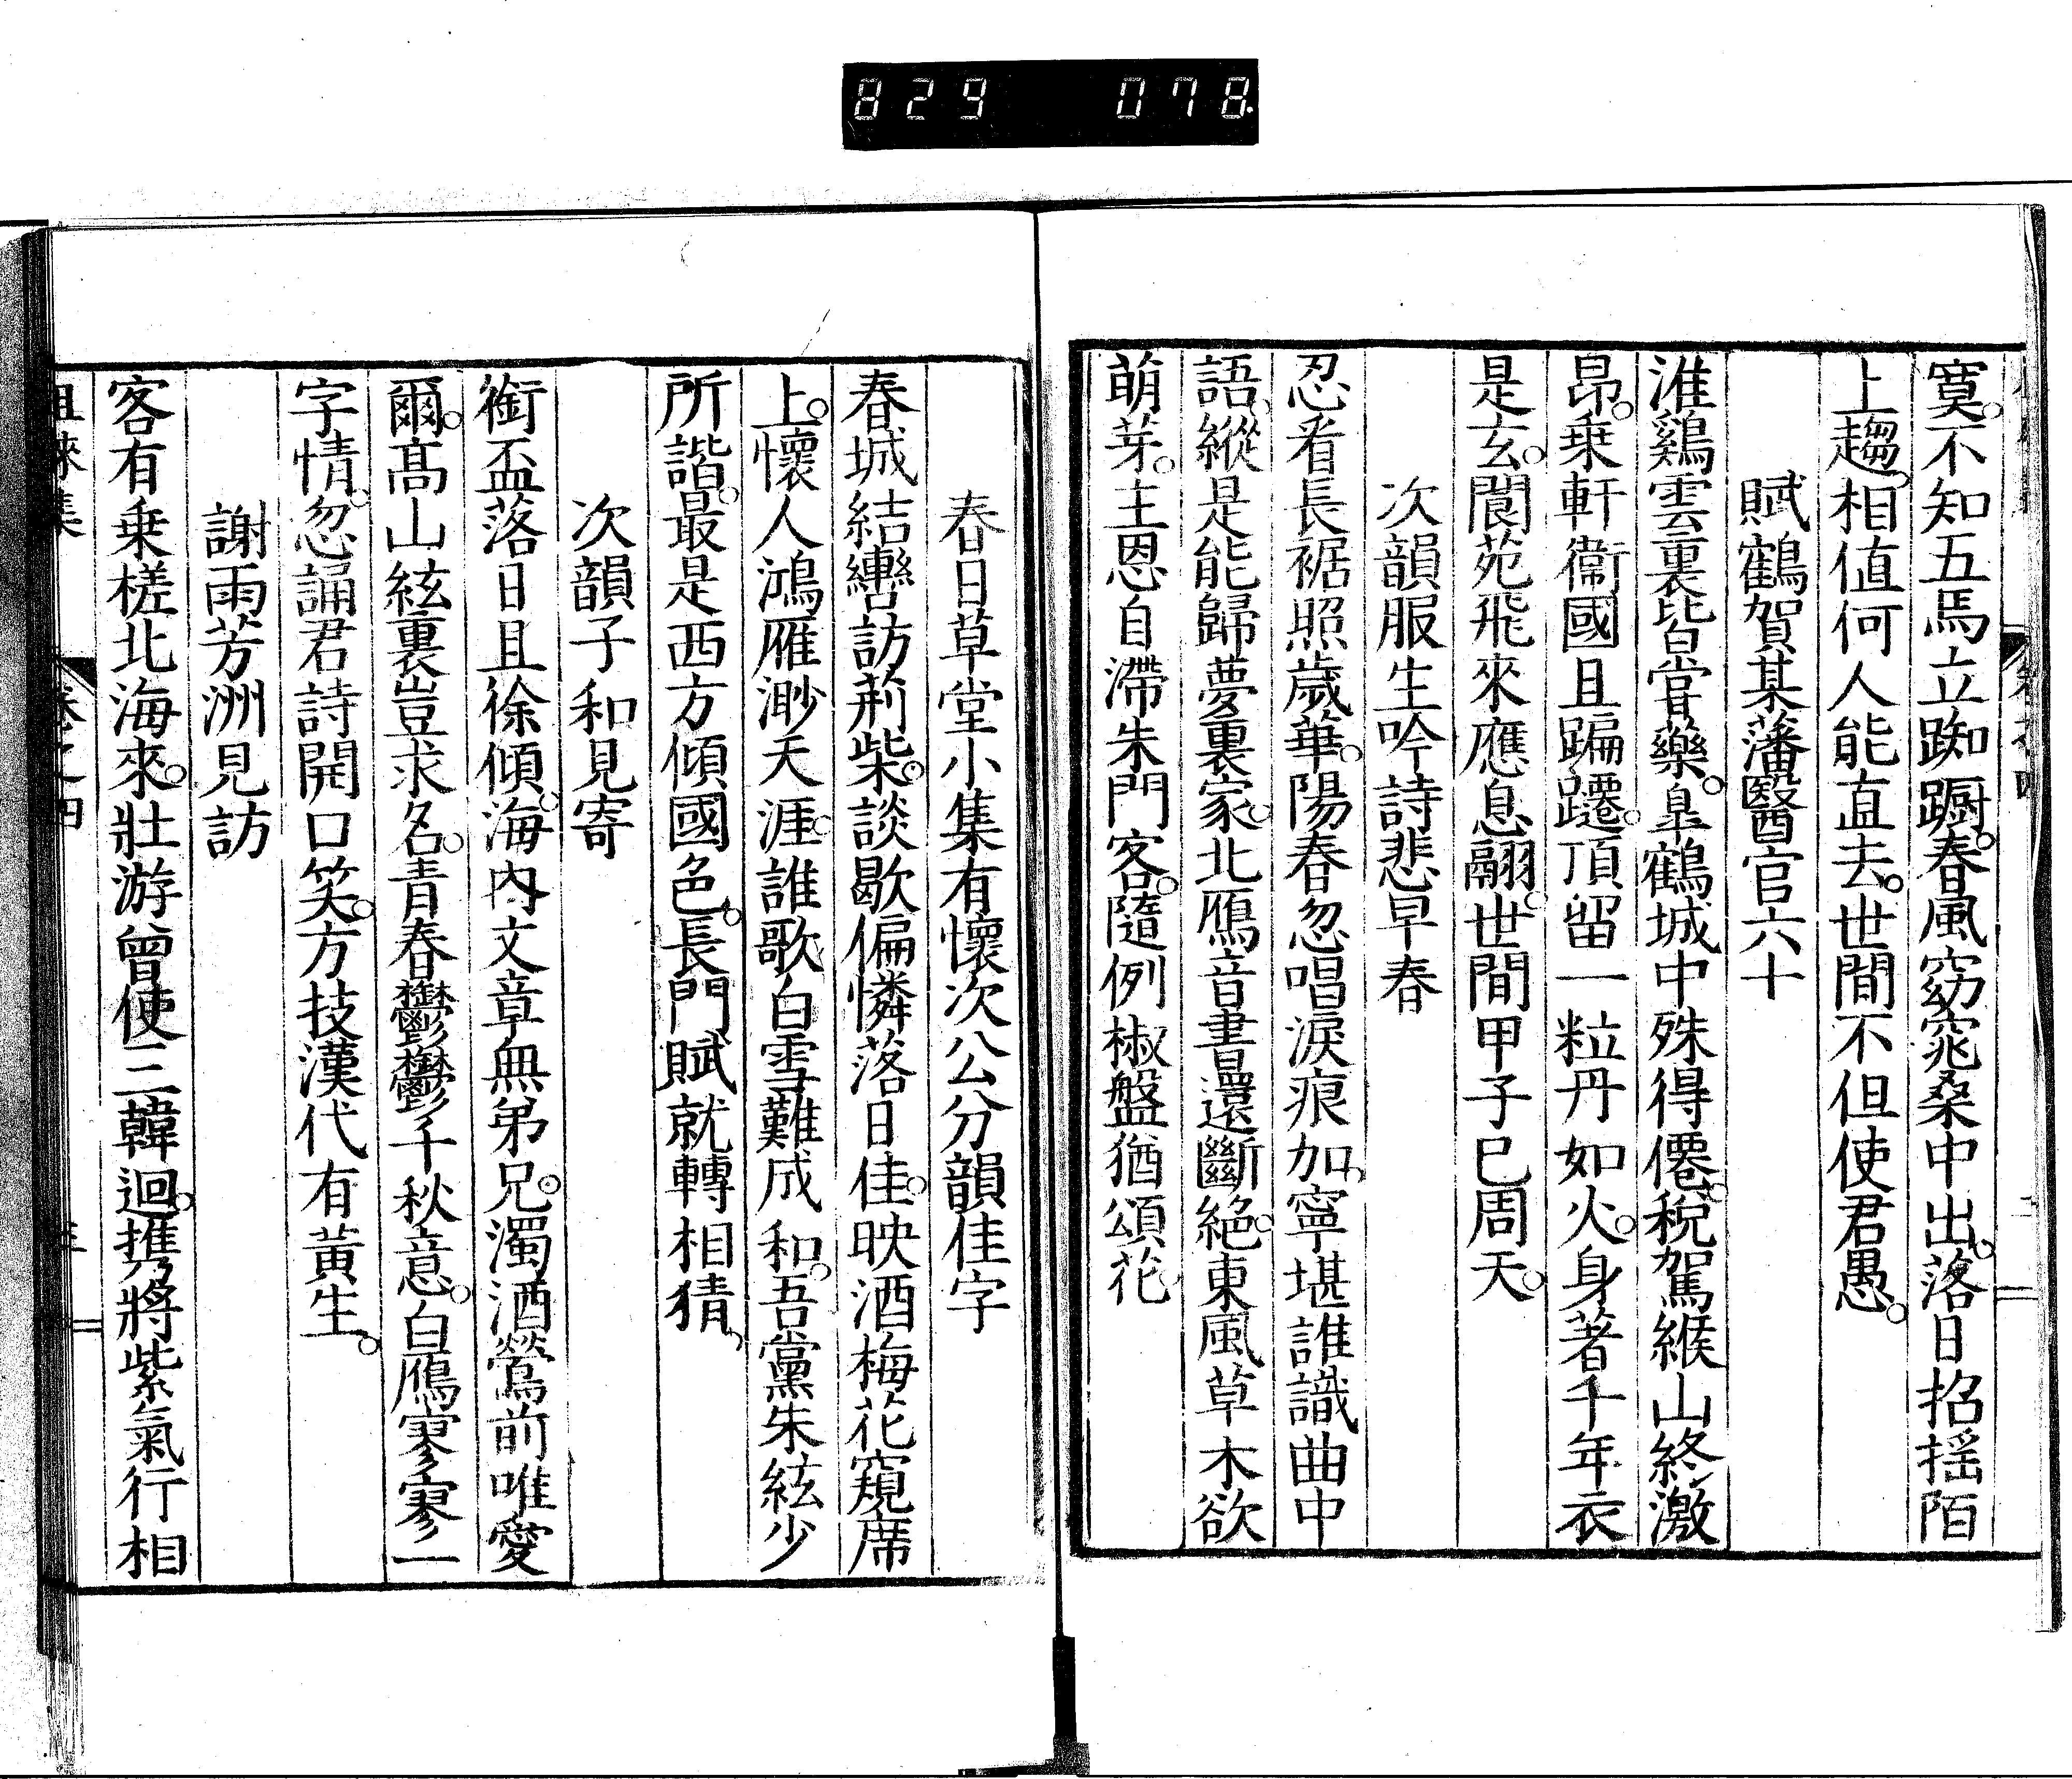 829 078
寞。不知五馬立踟蹰。春風窈窕桑中出。落日招搖陌
上趨。相值何人能直去。世間不但使君愚。
賦鶴賀某藩醫官六十
淮鷄雲裏皆甞藥。皐鶴城中殊得僊。稅駕緱山終激
昂。乗軒衞國且蹁躚。頂留一粒丹如火。身著千年衣
是玄。閬苑飛來應息翮。世間甲子已周天。
次韻服生吟詩悲早春
忍看長裾照歲華。陽春忽唱淚痕加。寧堪誰識曲中
語。縱是能歸夢裏家。北鴈音書還斷絕。東風草木欲
萌芽。主恩自滯朱門客。隨例椒盤猶頌花。
春日草堂小集有懷次公分韻佳字
春城結轡訪荊柴。談歇偏憐落日佳。映酒梅花窺席
上。懷人鴻雁渺天涯。誰歌白雪難成和。吾黨朱絃少
所諧。最是西方傾國色。長門賦就轉相猜。
次韻子和見寄
銜盃落日且徐傾。海內文章無弟兄。濁酒鶯前唯愛
爾。高山絃裏豈求名。青春鬱鬱千秋意。白鴈寥寥一
字情。忽誦君詩開口笑。方技漢代有黃生。
謝雨芳洲見訪
客有乗槎北海來。壯游曾使三韓迴。携將紫氣行相
徂徠集 卷之四